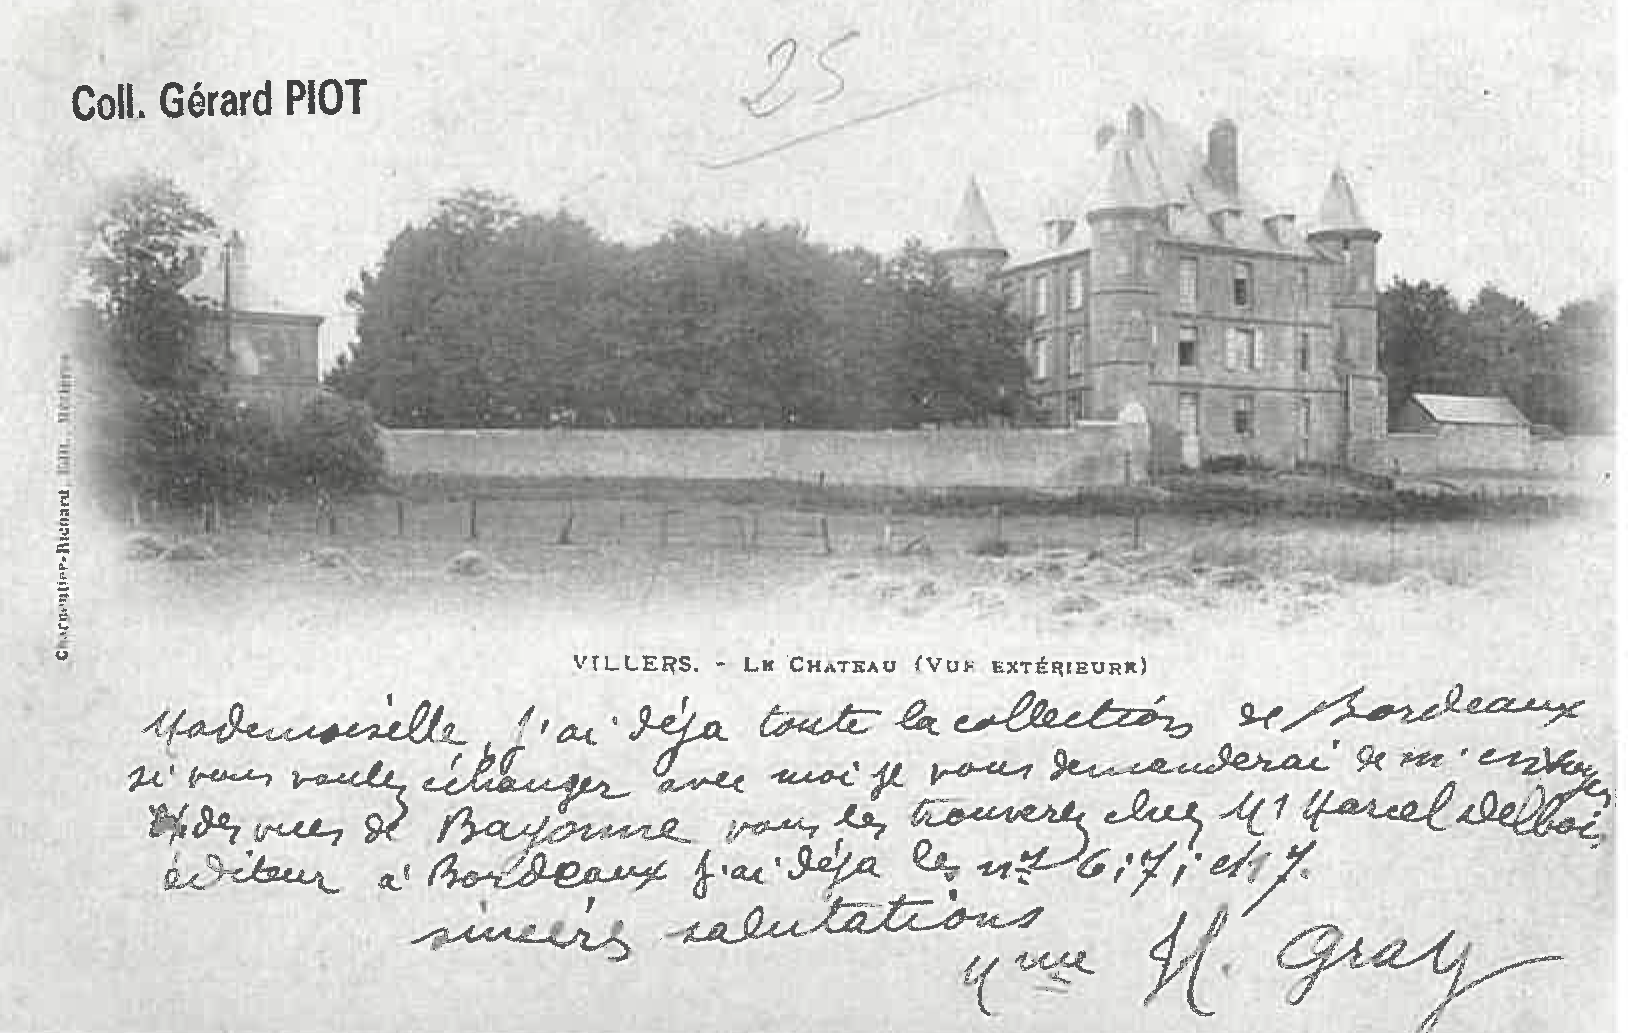 25
Coll. Gérard PIOT
Charpentier-Richard, Édit., Mézières
VILLERS. - LE CHATEAU (VUE EXTÉRIEURE)
Mademoiselle, J'ai déja toute la collection de Bordeaux
si vous voulez échanger avec moi je vous demanderai de m'envoyer
des vues de Bayonne vous les trouverez chez Mr Marcel Delboi,
éditeur a Bordeaux J'ai déja les nos 6; 7; et 17.
sincères salutations
Mme H. Gray